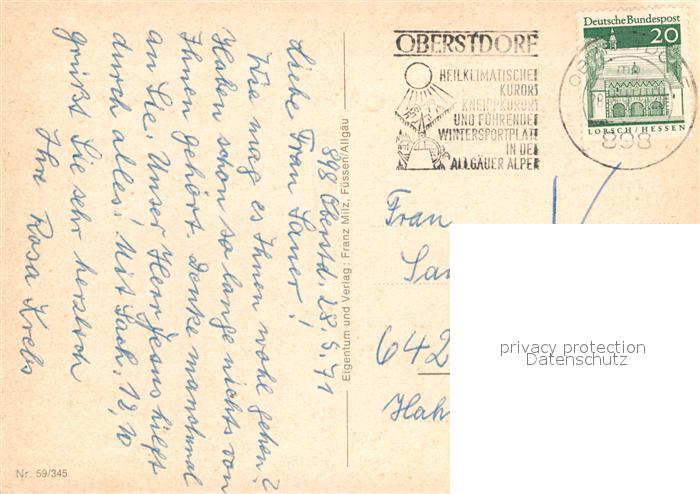 898 Oberstd. 28.5.71
Liebe Frau Sauer!
Wie mag es Ihnen wohl gehen?
Haben schon so lange nichts von
Ihnen gehört. Denke manchmal
an Sie. Unser Herr Jesus hilft
durch alles! Mit Sach. 12,10
grüßt Sie sehr herzlich
Ihre Rosa Krebs
Nr. 59/345
Eigentum und Verlag: Franz Milz, Füssen/Allgäu
OBERSTDORF
HEILKLIMATISCHER
KURORT
KNEIPPKURORT
UND FÜHRENDER
WINTERSPORTPLATZ
IN DEN
ALLGÄUER ALPEN
Deutsche Bundespost
20
LORSCH/HESSEN
898
Frau
Sau
642
Hah
privacy protection
Datenschutz